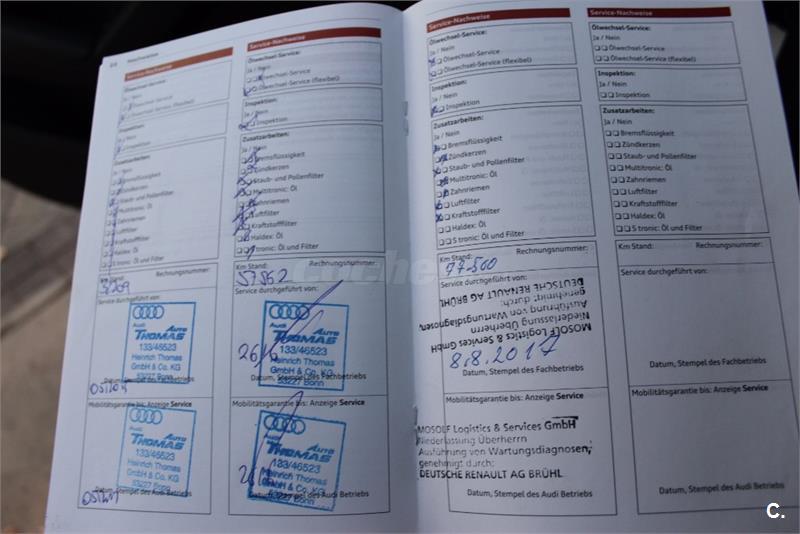 Service-Nachweise
Ölwechsel-Service:
Ja / Nein
Ölwechsel-Service
Ölwechsel-Service (flexibel)
Inspektion:
Ja / Nein
Inspektion
Zusatzarbeiten:
Ja / Nein
Bremsflüssigkeit
Zündkerzen
Staub- und Pollenfilter
Multitronic: Öl
Zahnriemen
Luftfilter
Kraftstofffilter
Haldex: Öl
S tronic: Öl und Filter
Km Stand: Rechnungsnummer:
Service durchgeführt von:
Audi
THOMAS AUTO
133/46523
Heinrich Thomas
GmbH & Co. KG
53227 Bonn
Datum, Stempel des Fachbetriebs
Mobilitätsgarantie bis: Anzeige Service
Audi
THOMAS AUTO
133/46523
Heinrich Thomas
GmbH & Co. KG
53227 Bonn
Datum, Stempel des Audi Betriebs
Service-Nachweise
Ölwechsel-Service:
Ja / Nein
Ölwechsel-Service
Ölwechsel-Service (flexibel)
Inspektion:
Ja / Nein
Inspektion
Zusatzarbeiten:
Ja / Nein
Bremsflüssigkeit
Zündkerzen
Staub- und Pollenfilter
Multitronic: Öl
Zahnriemen
Luftfilter
Kraftstofffilter
Haldex: Öl
S tronic: Öl und Filter
Km Stand: Rechnungsnummer:
57562
Service durchgeführt von:
Audi
THOMAS AUTO
133/46523
Heinrich Thomas
GmbH & Co. KG
53227 Bonn
Datum, Stempel des Fachbetriebs
Mobilitätsgarantie bis: Anzeige Service
Audi
THOMAS AUTO
133/46523
Heinrich Thomas
GmbH & Co. KG
53227 Bonn
Datum, Stempel des Audi Betriebs
Service-Nachweise
Ölwechsel-Service:
Ja / Nein
Ölwechsel-Service
Ölwechsel-Service (flexibel)
Inspektion:
Ja / Nein
Inspektion
Zusatzarbeiten:
Ja / Nein
Bremsflüssigkeit
Zündkerzen
Staub- und Pollenfilter
Multitronic: Öl
Zahnriemen
Luftfilter
Kraftstofffilter
Haldex: Öl
S tronic: Öl und Filter
Km Stand: Rechnungsnummer:
77500
Service durchgeführt von:
MOSOLF Logistics & Services GmbH
Niederlassung Überherrn
Ausführung von Wartungsdiagnosen,
genehmigt durch:
DEUTSCHE RENAULT AG BRÜHL
8.8.2017
Datum, Stempel des Fachbetriebs
Mobilitätsgarantie bis: Anzeige Service
MOSOLF Logistics & Services GmbH
Niederlassung Überherrn
Ausführung von Wartungsdiagnosen,
genehmigt durch:
DEUTSCHE RENAULT AG BRÜHL
Datum, Stempel des Audi Betriebs
Service-Nachweise
Ölwechsel-Service:
Ja / Nein
Ölwechsel-Service
Ölwechsel-Service (flexibel)
Inspektion:
Ja / Nein
Inspektion
Zusatzarbeiten:
Ja / Nein
Bremsflüssigkeit
Zündkerzen
Staub- und Pollenfilter
Multitronic: Öl
Zahnriemen
Luftfilter
Kraftstofffilter
Haldex: Öl
S tronic: Öl und Filter
Km Stand: Rechnungsnummer:
Service durchgeführt von:
Datum, Stempel des Fachbetriebs
Mobilitätsgarantie bis: Anzeige Service
Datum, Stempel des Audi Betriebs
C.